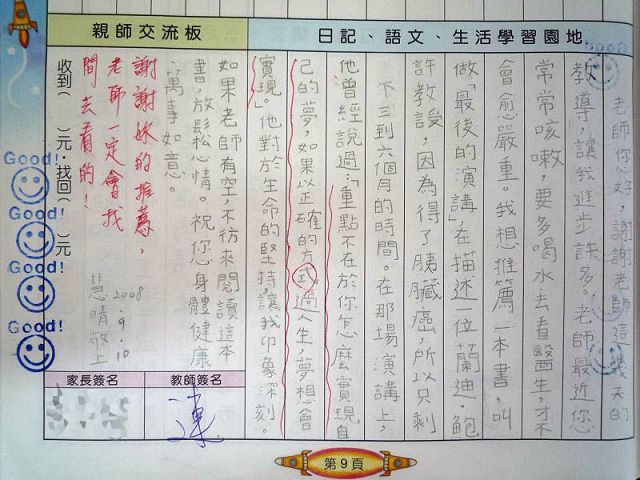 日記、語文、生活學習園地
老師你好，謝謝老師這幾天的
教導，讓我進步許多。老師最近您
常常咳嗽，要多喝水去看醫生，才不
會愈嚴重。我想推薦一本書，叫
做「最後的演講」，在描述一位蘭迪·鮑
許教授，因為得了胰臟癌，所以只剩
下三到六個月的時間。在那場演講上，
他曾經說過：「重點不在於你怎麼實現自
己的夢，如果以正確的方式過人生，夢想會
實現」。他對於生命的堅持，讓我印象深刻。
如果老師有空，不彷來閱讀這本
書，放鬆心情。祝您身體健康
、萬事如意。
慧晴敬上
2008.9.10
親師交流板
謝謝妳的推薦，
老師一定會找
間去看的！
收到(　)元．找回(　)元
Good!
Good!
Good!
Good!
教師簽名
家長簽名
第9頁